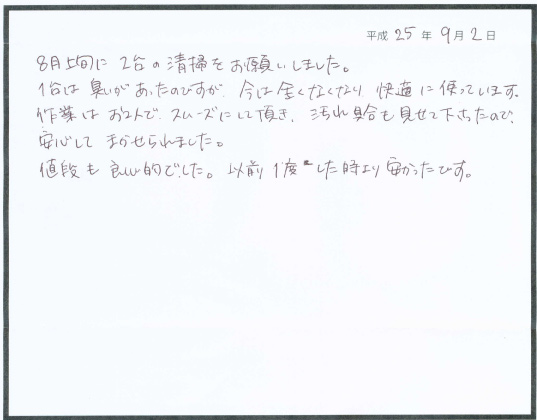 平成 25 年 9 月 2 日
8月上旬に 2台の清掃をお願いしました。
1台は臭いがあったのですが、今は全くなくなり 快適に使っています。
作業はお2人で スムーズにして頂き、汚れ具合も見せて下さったので、
安心して まかせられました。
値段も 良心的でした。以前 1度 した時より 安かったです。